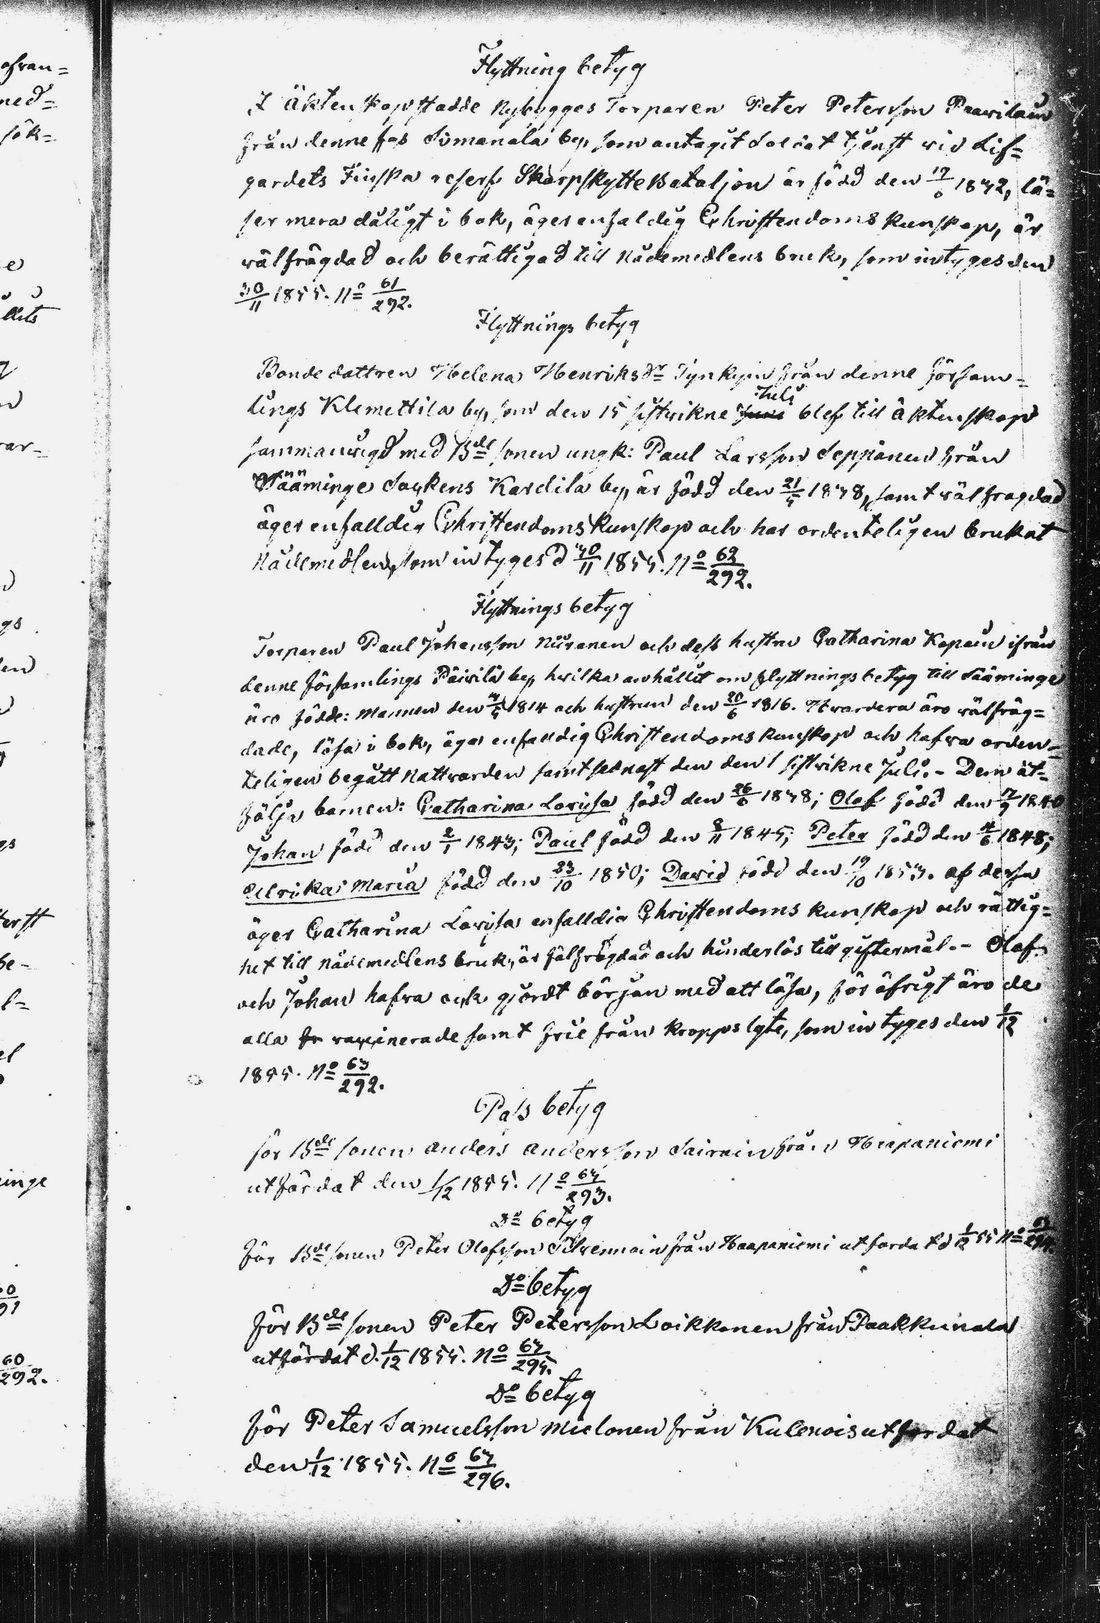 Flyttning betyg
I äktenskap stadde Nybygges Torparen Peter Petersson
från denne by, som antagit Soldat tjenst wid Lif=
gardets Finska reserf Skarpskytte Bataljon är född den 17/6 1832, lä=
ser mera dåligt i bok, äger enfaldig Christendoms kunskap, är
wälfrägdad och berättigad till Nådemedlens bruk, som intyges den
30/11 1855. No 61/292.
Flyttnings betyg
Bonde dottren Helena Henriksdr från denne försam=
lings Klemettila by, som den 15 sistwikne Juli blef till äktenskap
sammanwigd med Bde sonen ungk: Paul Larsson Seppänen från
Sääminge Sockens Kardila by, är född den 21/5 1838, samt wälfrägdad
äger enfalldig Christendoms kunskap och har ordenteligen brukat
Nådemedlen, som intyges d 30/11 1855. No 62/292.
Flyttnings betyg
Torparen Paul Johansson och dess hustru Catharina Kopain ifrån
denne församlings by, hwilka anhållit om flyttningsbetyg till Sääminge
äro födde: Mannen den 1814 och hustrun den 20/6 1816. Hwardera äro wälfräg=
dade, läsa i bok, äga enfaldig Christendoms kunskap och hafwa orden=
teligen begått Nattwarden samt sednast den den 1 sistwikne Juli. - Dem åt=
följa barnen: Catharina Lovisa född den 26/6 1838; Olof född den 1840
Johan född den 2/1 1843; Paul född den 8/11 1845; Peter född den 4/6 1848;
Ulrika Maria född den 23/10 1850; Dawid född den 19/10 1853. af dessa
äger Catharina Lovisa enfalldig Christendoms kunskap och rättig=
het till Nådemedlens bruk, är fälfrägdad och hinderlös till giftermål. - Olof
och Johan hafwa ock gjordt början med att läsa, för öfrigt äro de
alla vaccinerade samt frie från kropps lyte, som intyges den 1/12
1855. No 63/292.
Pass betyg
för Bde sonen Anders Andersson Sairain från Haapaniemi
utfärdat den 1/12 1855. No 64/293.
Do betyg
för Bde sonen Peter Olofsson från Haapaniemi utfärdat d 1/12 55 No
Do betyg
för Bde sonen Peter Petersson Loikkanen från
utfärdat d. 1/12 1855. No 64/295.
Do betyg
för Peter Samuelsson Mielonen från Kulenois utfärdat
den 1/12 1855. No 64/296.